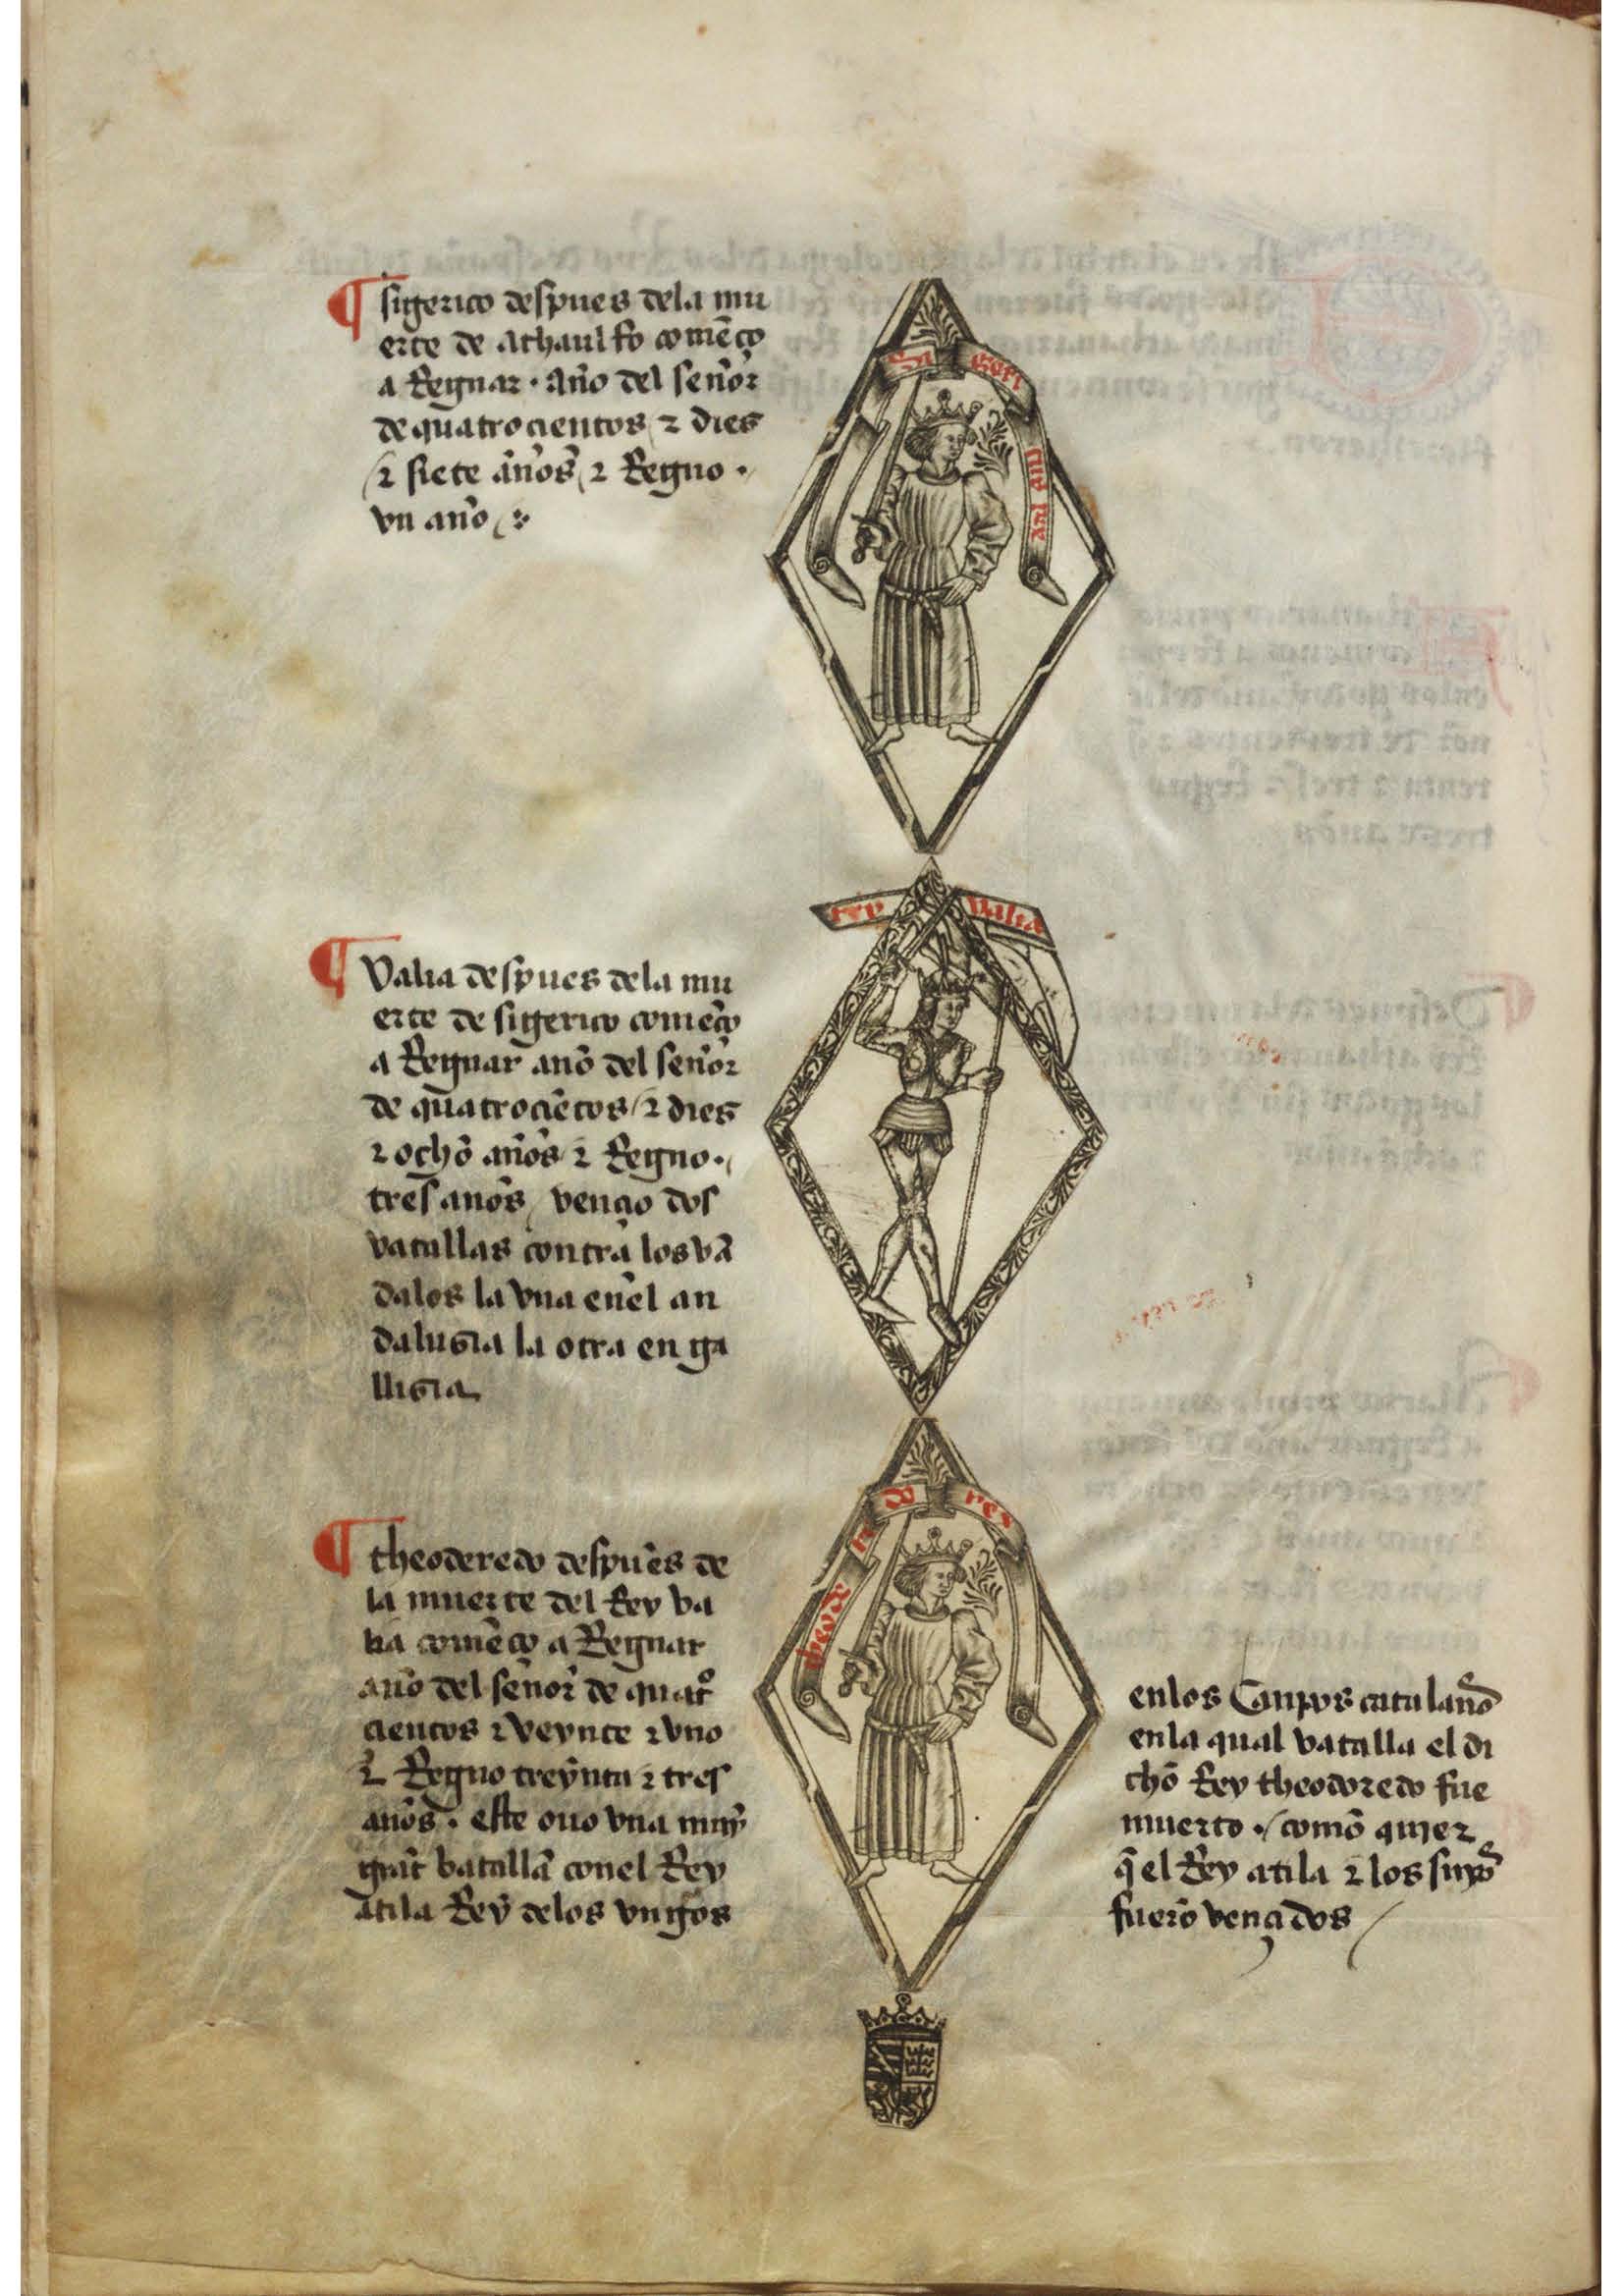 ¶ sigerico despues dela mu
erte de athaulfo comẽço
a Regnar · año del señor
de quatrocientos / ⁊ dies
/ ⁊ siete años / ⁊ Regno ·
vn año /
rey valia
¶ Valia despues dela mu
erte de sigerico comẽço
a Regnar año del señor
de quatrociẽtos / ⁊ dies
⁊ ocho años ⁊ Regno · /
tres años / vencio dos
vatallas contra los vã
dalos la vna enel an
dalusia la otra en ga
llisia
theode re do rex
¶ theoderedo despues de
la muerte del Rey va
lia comẽço a Regnar
año del señor de quatrº
cientos ⁊ veynte ⁊ vno
⁊ Regno treynta ⁊ tres
años · este ouo vna muy
grãt batalla conel Rey
atila Rey delos vngos
enlos Canpos catulanos
enla qual vatalla el di
cho Rey theodoredo fue
muerto · / como quier
q̃ el Rey atila ⁊ los suyos
fuerõ vencidos /